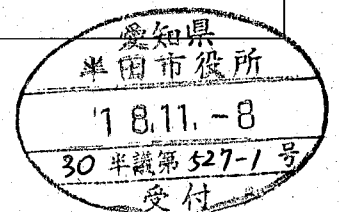 愛知県
半田市役所
'18.11.-8
30 半議第 527-1 号
受付